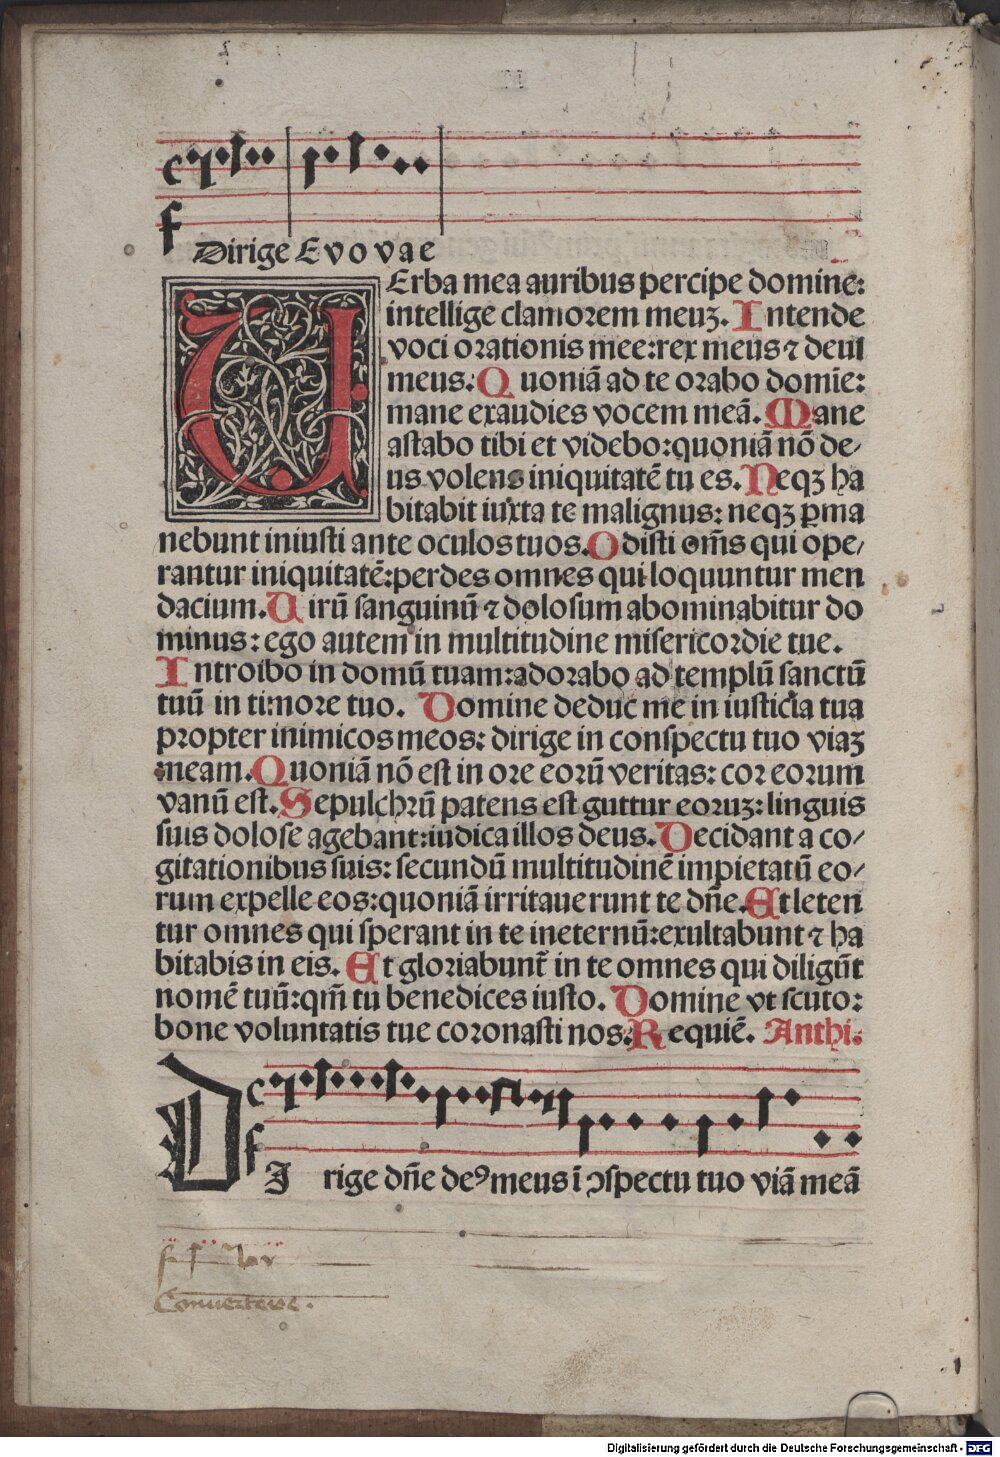 Dirige Evovae
VErba mea auribus percipe domine:
intellige clamorem meuʒ. Intende
voci orationis mee: rex meus ⁊ deus
meus. Quoniā ad te orabo domīe:
mane exaudies vocem meā. Mane
astabo tibi et videbo: quoniā nō de⸗
us volens iniquitatē tu es. Neqʒ ha
bitabit iuxta te malignus: neqʒ ꝑma
nebunt iniusti ante oculos tuos. Odisti om̄s qui ope⸗
rantur iniquitatē: perdes omnes qui loquuntur men
dacium. Uirū sanguinū ⁊ dolosum abominabitur do
minus: ego autem in multitudine misericordie tue.
Introibo in domū tuam: adorabo ad templū sanctū
tuū in timore tuo. Domine deduc me in iusticia tua
propter inimicos meos: dirige in conspectu tuo viaʒ
meam. Quoniā nō est in ore eorū veritas: cor eorum
vanū est. Sepulchrū patens est guttur eoruʒ: linguis
suis dolose agebant: iudica illos deus. Decidant a co⸗
gitationibus suis: secundū multitudinē impietatū eo⸗
rum expelle eos: quoniā irritauerunt te dn̄e. Et leten
tur omnes qui sperant in te in eternū: exultabunt ⁊ ha
bitabis in eis. Et gloriabunt̄ in te omnes qui diligūt
nomē tuū: qm̄ tu benedices iusto. Domine vt scuto:
bone voluntatis tue coronasti nos. Requiē. Anthi.
DIrige dn̄e deꝰ meus ī ↄspectu tuo viā meā
Conuertere.
Digitalisierung gefördert durch die Deutsche Forschungsgemeinschaft - DFG